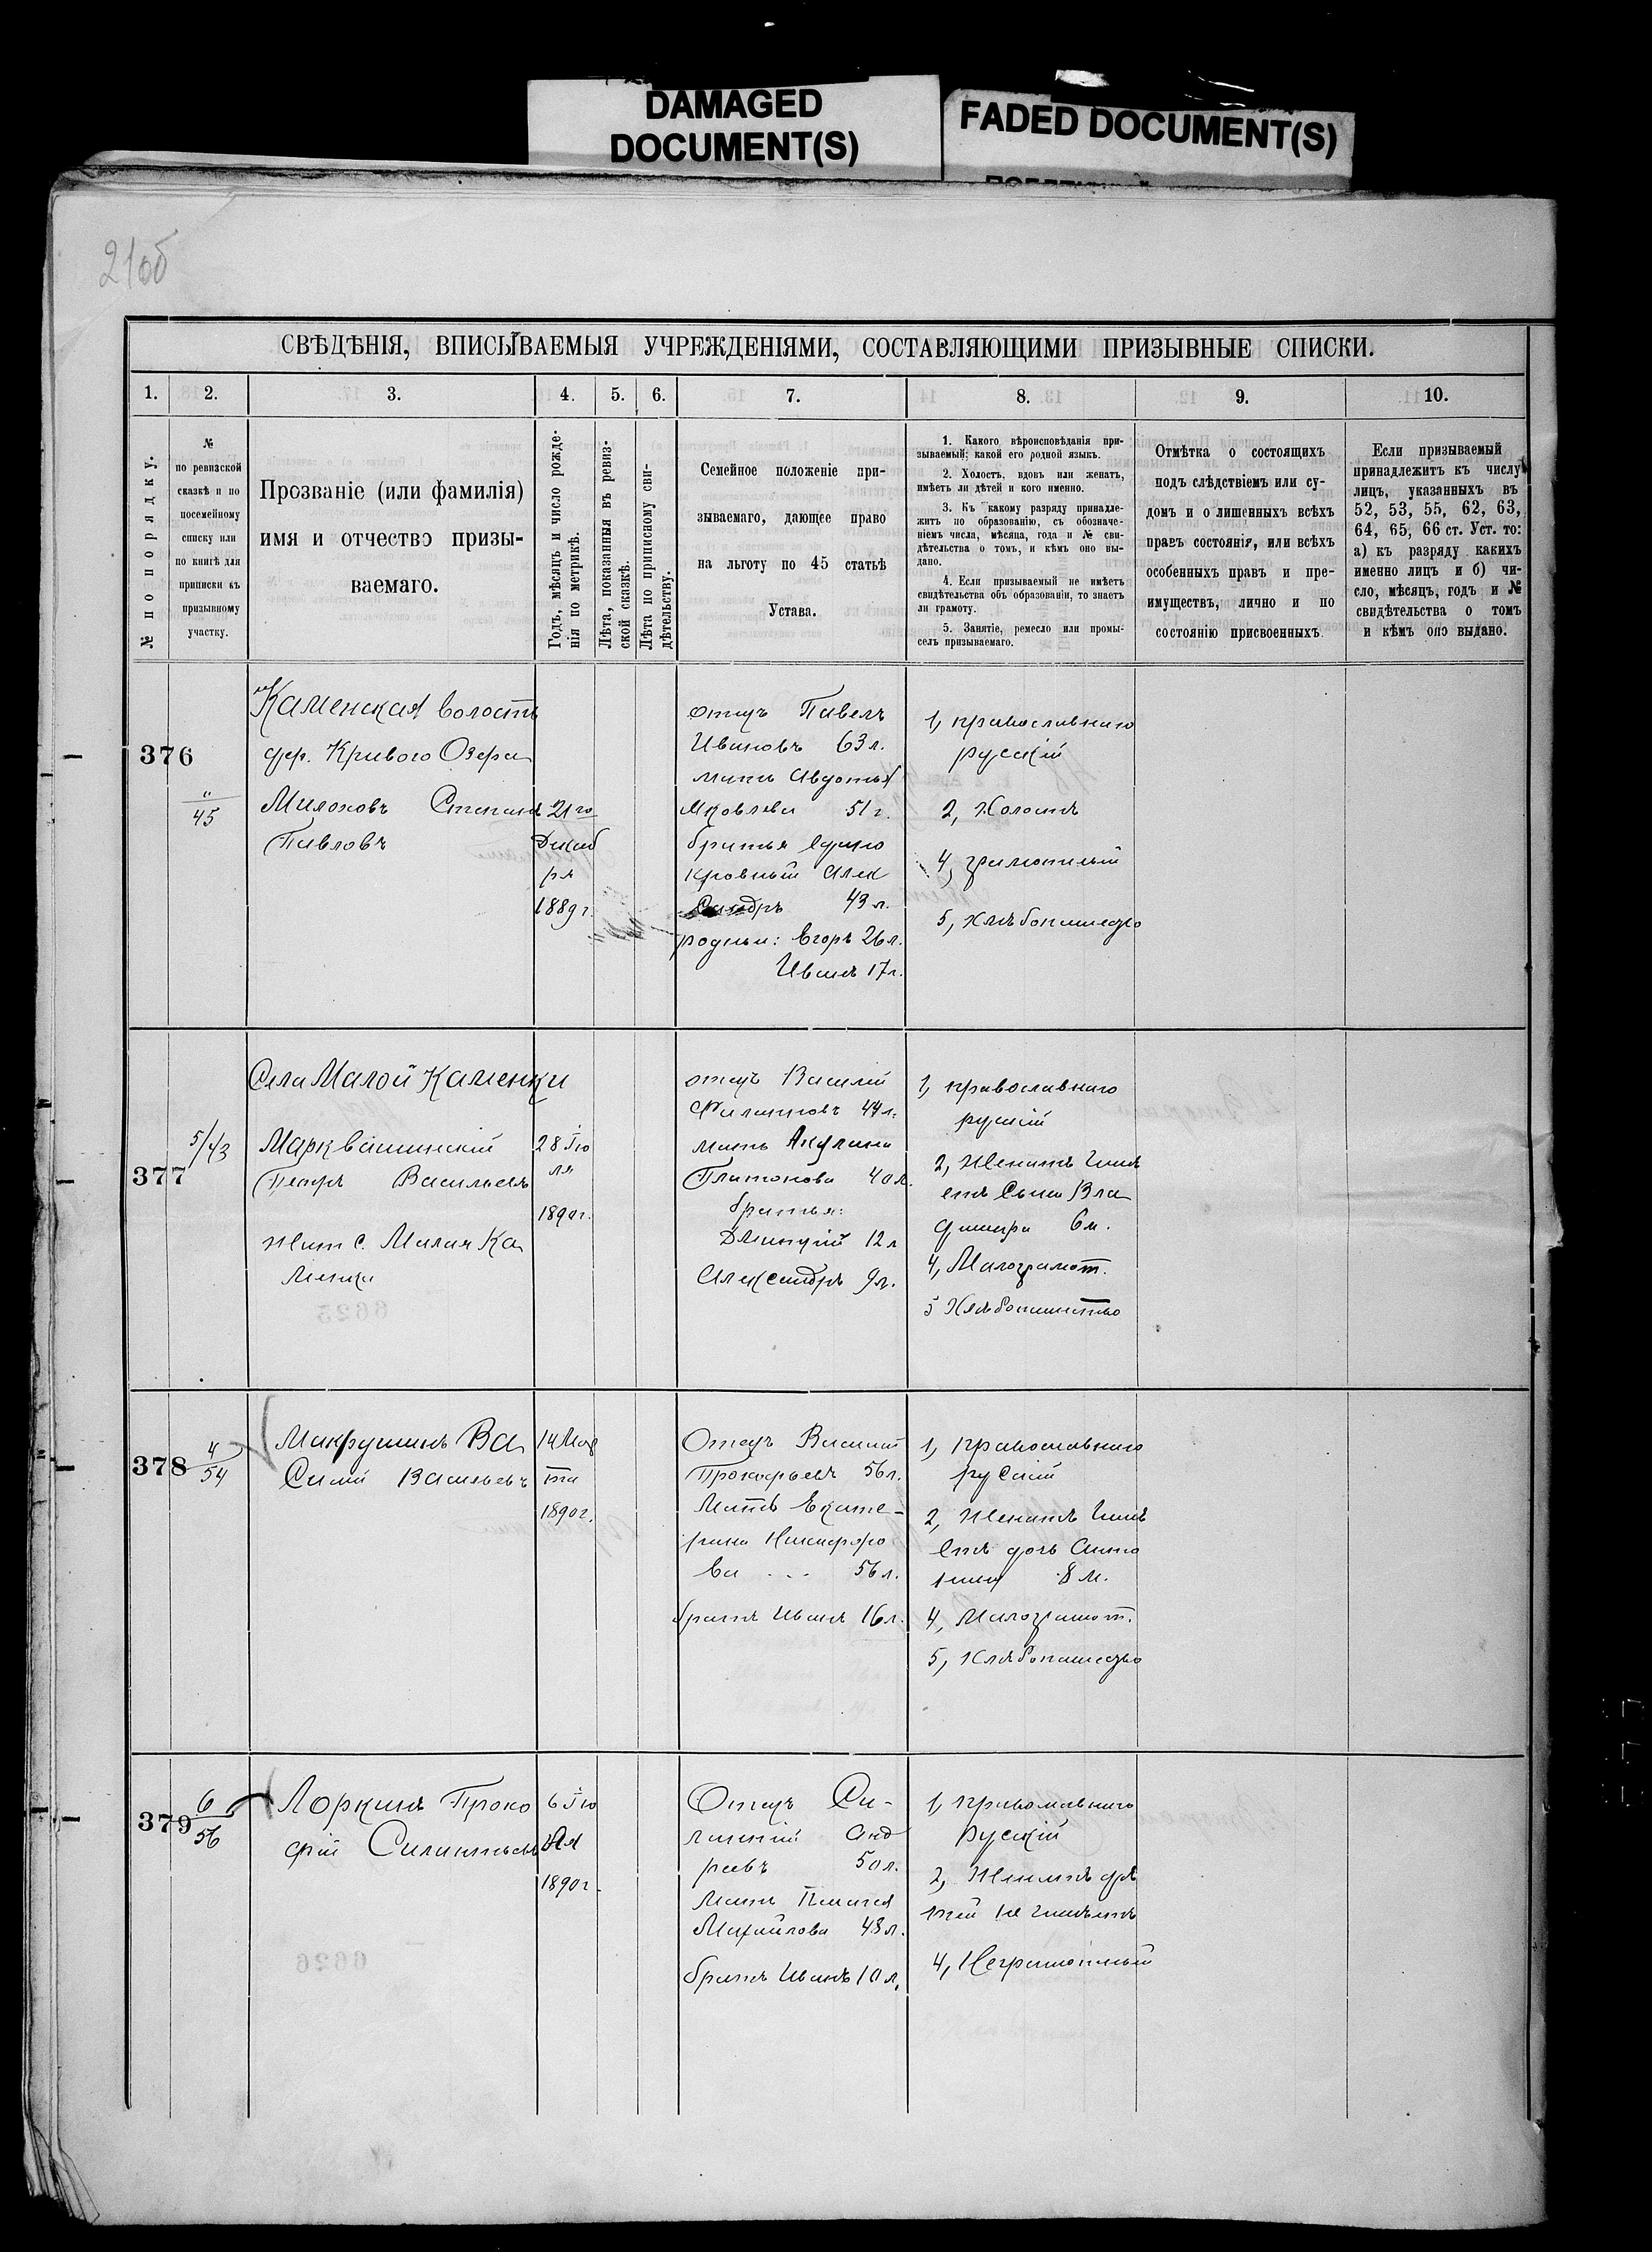 DAMAGED
DOCUMENT(S)
FADED DOCUMENT(S)
21об
СВѢДѢНІЯ, ВПИСЫВАЕМЫЯ УЧРЕЖДЕНІЯМИ, СОСТАВЛЯЮЩИМИ ПРИЗЫВНЫЕ СПИСКИ.
1. 2. 3. 4. 5. 6. 7. 8. 9. 10.
№ по порядку.
№
по ревизской
сказкѣ и по
посемейному
списку или
по книгѣ для
приписки къ
призывному
участку.
Прозваніе (или фамилія)
имя и отчество призы-
ваемаго.
Годъ, мѣсяцъ и число рожде-
нія по метрикѣ.
Лѣта, показанныя въ ревиз-
ской сказкѣ.
Лѣта по приписному сви-
дѣтельству.
Семейное положеніе при-
зываемаго, дающее право
на льготу по 45 статьѣ
Устава.
1. Какого вѣроисповѣданія при-
зываемый; какой его родной языкъ.
2. Холостъ, вдовъ или женатъ,
имѣетъ ли дѣтей и кого именно.
3. Къ какому разряду принадле-
житъ по образованію, съ обозначе-
ніемъ числа, мѣсяца, года и № сви-
дѣтельства о томъ, и кѣмъ оно вы-
дано.
4. Если призываемый не имѣетъ
свидѣтельства объ образованіи, то знаетъ
ли грамоту.
5. Занятіе, ремесло или промы-
селъ призываемаго.
Отмѣтка о состоящихъ
подъ слѣдствіемъ или су-
домъ и о лишенныхъ всѣхъ
правъ состоянія, или всѣхъ
особенныхъ правъ и пре-
имуществъ, лично и по
состоянію присвоенныхъ.
Если призываемый
принадлежитъ къ числу
лицъ, указанныхъ въ
52, 53, 55, 62, 63,
64, 65, 66 ст. Уст. то:
а) къ разряду какихъ
именно лицъ и б) чи-
сло, мѣсяцъ, годъ и №
свидѣтельства о томъ
и кѣмъ оно выдано.
376
45
Каменская волость
дер. Кривого Озера
Степанъ
Павловъ
21го
Декаб
ря
1889 г.
отецъ Павелъ
Ивановъ 63 л.
мать Авдотья
Яковлева 51 г.
братья едино
кровный Алек
сандръ 43 л.
родные: Егоръ 26 л.
Иванъ 17 л.
1, православнаго
русскій
2, Холостъ
4, грамотный
5, хлѣбопашество
377
5/43
Села Малой Каменки
Петръ Васильевъ
жит с. Малая Ка
менка
28 Ію
ля
1890 г.
отецъ Василій
Филипповъ 44 л.
мать Акулина
Платонова 40 л.
братья:
Дмитрій 12 л
Александръ 9 л.
1, православнаго
русскій
2, Женатъ имѣ
етъ сына Вла
димира 6 м.
4, Малограмот.
5 Хлѣбопашество
378
4
54
Макрушинъ Ва
силій Васильевъ
14 Мар
та
1890 г.
Отецъ Василій
Прокофьевъ 56 л.
Мать Екате-
рина Никифоро
ва 56 л.
братъ Иванъ 16 л.
1, православнаго
русскій
2, Женатъ имѣ
етъ дочь Анто
нину 8 м.
4, Малограмот.
5, Хлѣбопашество
379
6
56
Лоркинъ Проко
фій Силантьевъ
6 Ію
1890 г.
Отецъ Си-
лантій Анд
реевъ 50 л.
Мать
Михайлова 48 л.
братъ Иванъ 10 л.
1, православнаго
русскій
2, Женатъ дѣ
тей не имѣетъ
4, Неграмотный